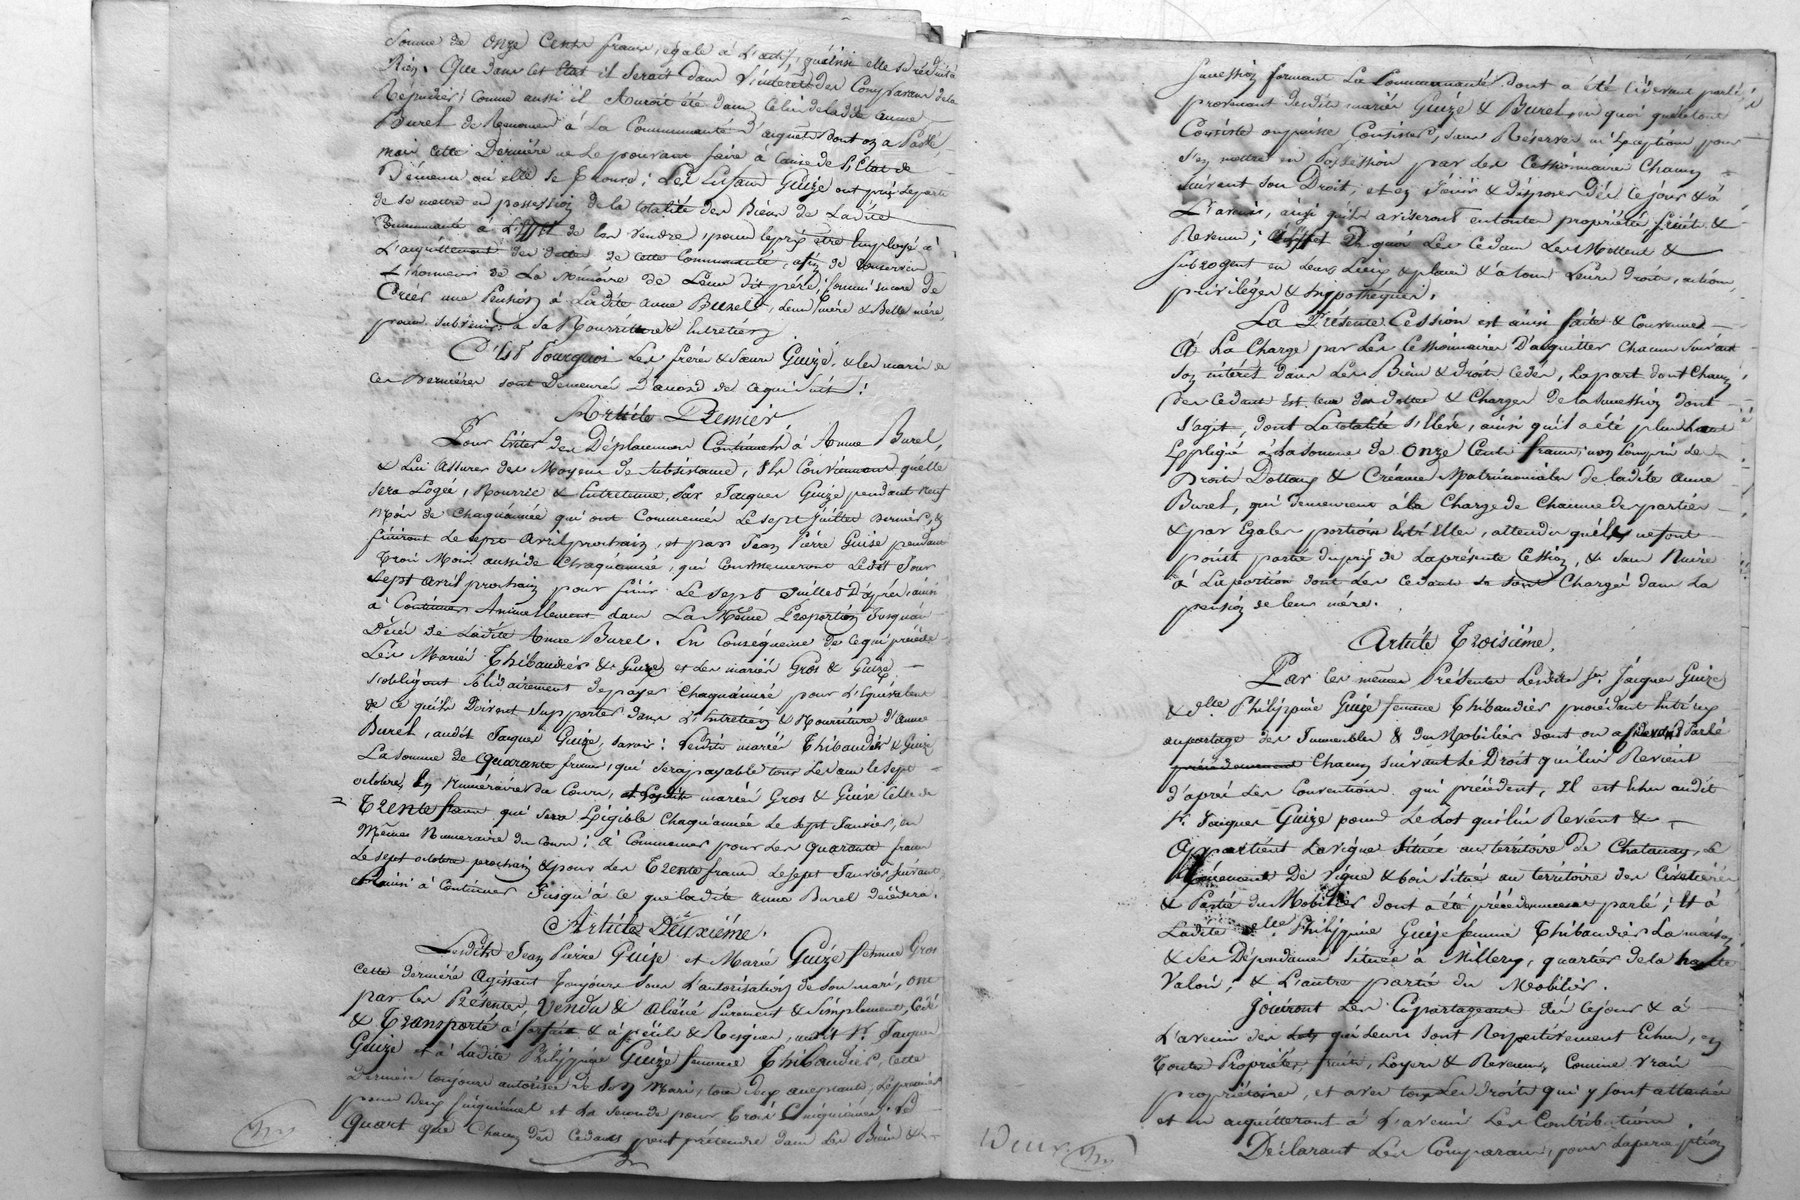 Somme de Onze Cents francs, égale à L'actif, qu'ainsi elle se réduit à
Rien. Que dans cet Etat il serait dans L'intérêt des Comparans de la
Répudier; Comme aussi il Auroit été dans Celui de ladite anne
Burel de Renoncer à La Communauté D'acquets dont on a Parlé,
mais cette Dernière ne Le pouvant faire à Cause de L'Etat de
Démence où elle se trouve; Les Enfans Guize ont pris Le parti
de se mettre en possession de la totalité des Biens de Ladite
Communauté à L'effet de les vendre, pour le prix être Employé à
L'acquittement des dettes de cette Communauté, afin de Conserver
L'honneur de La Mémoire de Leur dit père, Comme encore de
Créer une Pension à Ladite anne Burel, Leur mère & Belle mère,
pour subvenir à sa Nourriture & Entretien
C'est Pourquoi Les frères & sœurs Guize, & les maris de
Ces Dernières sont Demeurés D'accord de ce qui suit:
Article Premier
Pour Eviter des Déplacemens Continuels à Anne Burel,
& Lui Assurer des Moyens de Subsistance, Ils Conviennent qu'elle
sera Logée, Nourrie & Entretenue, Par Jacques Guize pendant neuf
Mois de Chaqu'année qui ont Commencés Le sept Juillet Dernier, &
finiront Le sept Avril prochain, et par Jean Pierre Guise pendant
trois Mois aussi de Chaqu'année, qui Commenceront Ledit Jour
sept avril prochain pour finir Le sept Juillet D'après, ainsi
à Continuer Annuellement dans La Même Proportion Jusqu'au
Décès de Ladite Anne Burel. En Conséquence de ce qui précède
Les Mariés Thibaudier & Guize et Les mariés Gros & Guize
s'obligent solidairement de payer Chaqu'année pour L'Equivalent
de ce qu'ils Doivent supporter dans L'Entretien & Nourriture d'Anne
Burel, audit Jacques Guize, savoir: Lesdits mariés Thibaudier & Guize
La somme de Quarante francs, qui sera payable tous Les ans le sept
octobre, En Numéraire du Cours, et Lesdits mariés Gros & Guise Celle de
= Trente francs qui sera Exigible Chaqu'année Le sept Janvier, en
Mêmes Numéraire du Cours; à Commencer pour Les quarante francs
Le sept octobre prochain & pour Les Trente francs Le sept Janvier suivant,
et Ainsi à Continuer Jusqu'à ce que ladite anne Burel décédera.
Article Deuxième.
Lesdits Jean Pierre Guize et Marie Guize femme Gros
cette dernière Agissant Toujours sous L'autorisation de son mari, ont
par les Présentes, Vendu & Aliéné Purement & simplement, Cédé
& Transporté à forfait & à périls & Risques, audit Sr. Jacques
Guize et à Ladite Philippine Guize femme Thibaudier, cette
Dernière toujours autorisée de son Mari, tous deux acceptants, Le premier
pour Deux Cinquièmes et La seconde pour trois Cinquièmes, Le
Quart que Chacun des Cédants peut prétendre dans Les Biens &
succession formant La Communauté Dont a été Cidevant parlé
provenant desdits mariés Guize & Burel, en quoi qu'elle tout
Consiste ou puisse Consister, sans Réserve ni Exception, pour
s'en mettre en Possession par les Cessionnaires Chacun
suivant son Droit, et en Jouir & disposer Dès Ce jour & à
L'avenir, ainsi qu'ils aviseront en toute propriété fruits &
Revenus; à l'effet De quoi Les Cédans Les Mettent &
subrogent en Leurs Lieux & place & à tous Leurs Droits, actions,
privilèges & hypothèques.
La Présente Cession est ainsi faite & Convenue
à La Charge par Les Cessionnaires D'acquitter Chacun suivant
son intérêt dans Les Biens & droits cédés, La part dont Chacun
Des Cédans Est tenu des dettes & Charges de la succession dont
s'agit, dont La totalité s'Elève, ainsi qu'il a été plus haut
Expliqué à la somme de Onze Cents francs, non Compris Les
Droits Dottaux & Créances Matrimoniales de ladite Anne
Burel, qui demeurent à La Charge de Chacune des parties
& par Egales portions Entr'Elles, attendu qu'elles ne font
point partie du prix de La présente Cession, & sans Nuire
à La portion dont Les Cédants se sont Chargés dans La
pension de leur mère.
Article Troisième.
Par les mêmes Présentes Lesdits Sr. Jacques Guize
& dlle Philippine Guize femme Thibaudier procédant Entr'eux
au partage des Immeubles & du Mobilier dont on a cidevant Parlé
précédemment Chacun suivant Le Droit qu'il lui Revient
D'après Les Conventions qui précèdent, Il est Echu audit
Sr. Jacques Guize pour Le Lot qui lui Revient &
Appartient La vigne située au territoire de Chatanay, Le
Ténement De Vigne & bois situé au territoire des
& Partie du Mobilier dont a été précédemment parlé; Et à
Ladite dlle Philippine Guize femme Thibaudier La maison
& ses Dépendances située à Millery, quartier de la haute
Valois, & L'autre partie du Mobilier.
Jouiront Les Copartageans dès ce jour & à
L'avenir des Lots qui Leurs sont Respectivement Echus, en
toute Propriété, fruits, Loyers & Revenus, Comme Vrais
propriétaires, et avec tous Les droits qui y sont attachés
et en acquitteront à L'avenir Les Contributions
Déclarant Les Comparans, pour La perception